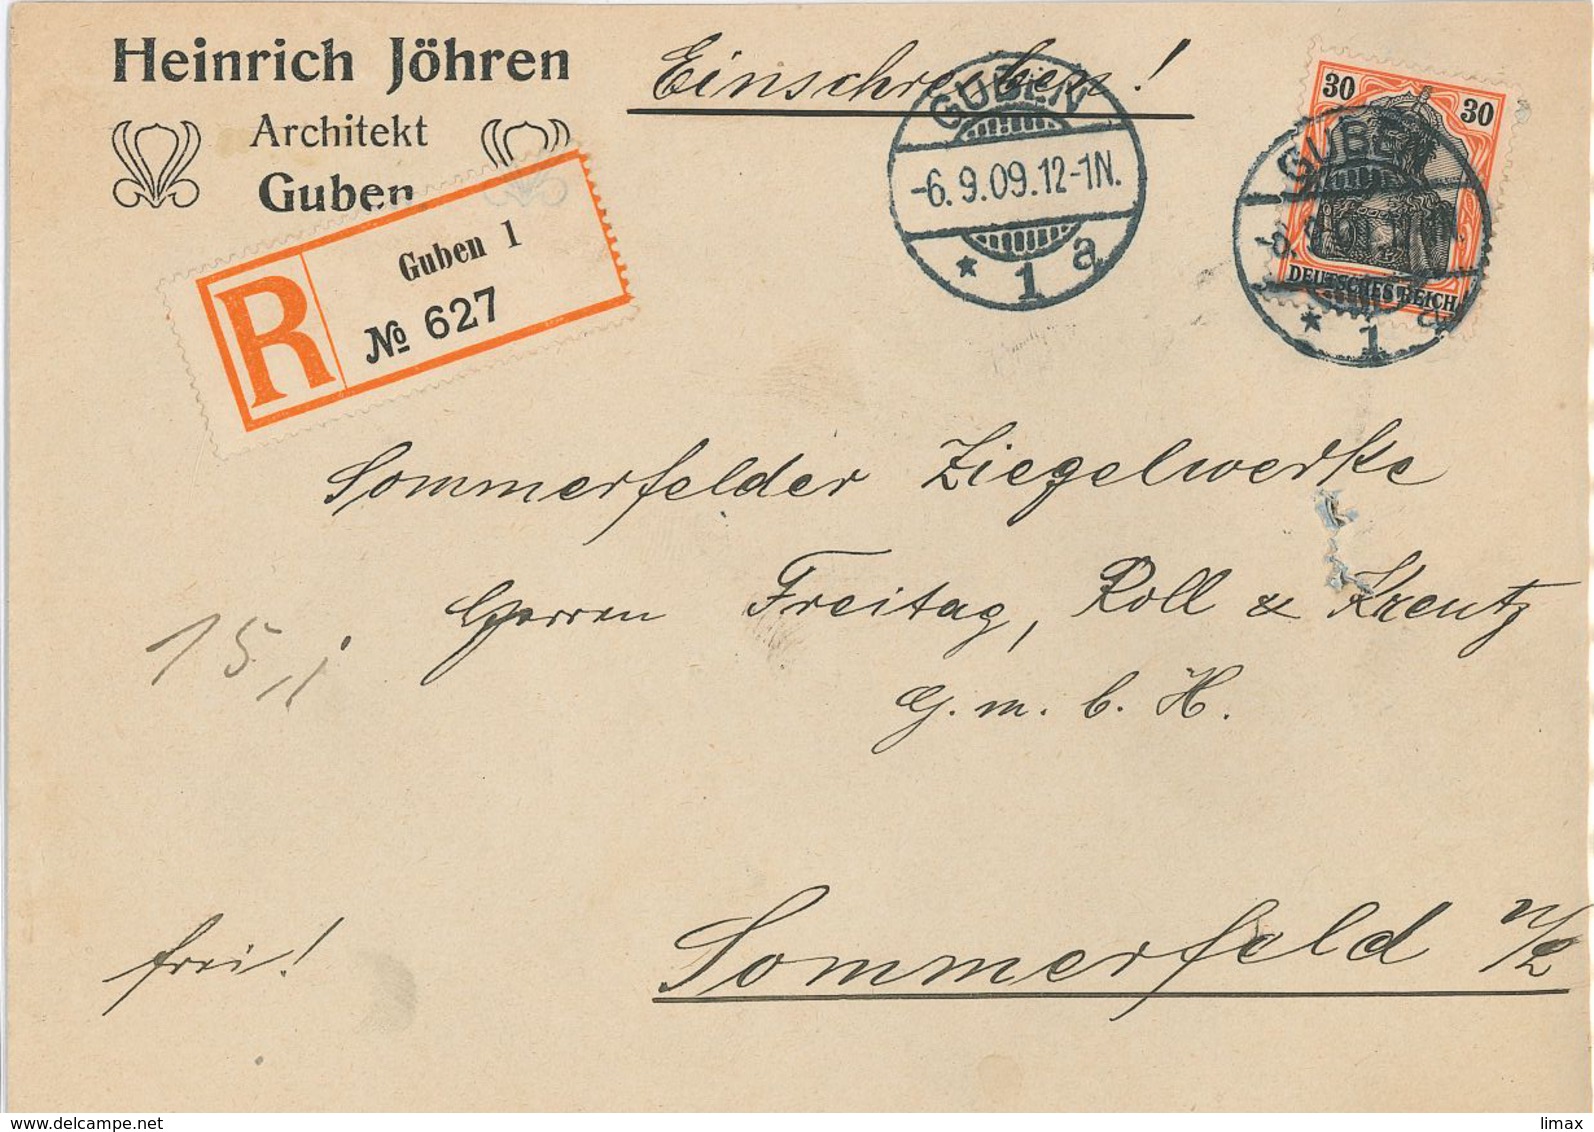 Heinrich Jöhren
Architekt
Guben
Einschreiben!
GUBEN
-6.9.09.12-1N.
* 1 a
30 30
DEUTSCHES REICH
GUBEN
* 1 a
R
Guben 1
№ 627
Sommerfelder Ziegelwerke
Herren Freitag, Roll & Kreutz
G. m. b. H.
15,
frei!
Sommerfeld N/L
www.delcampe.net
limax